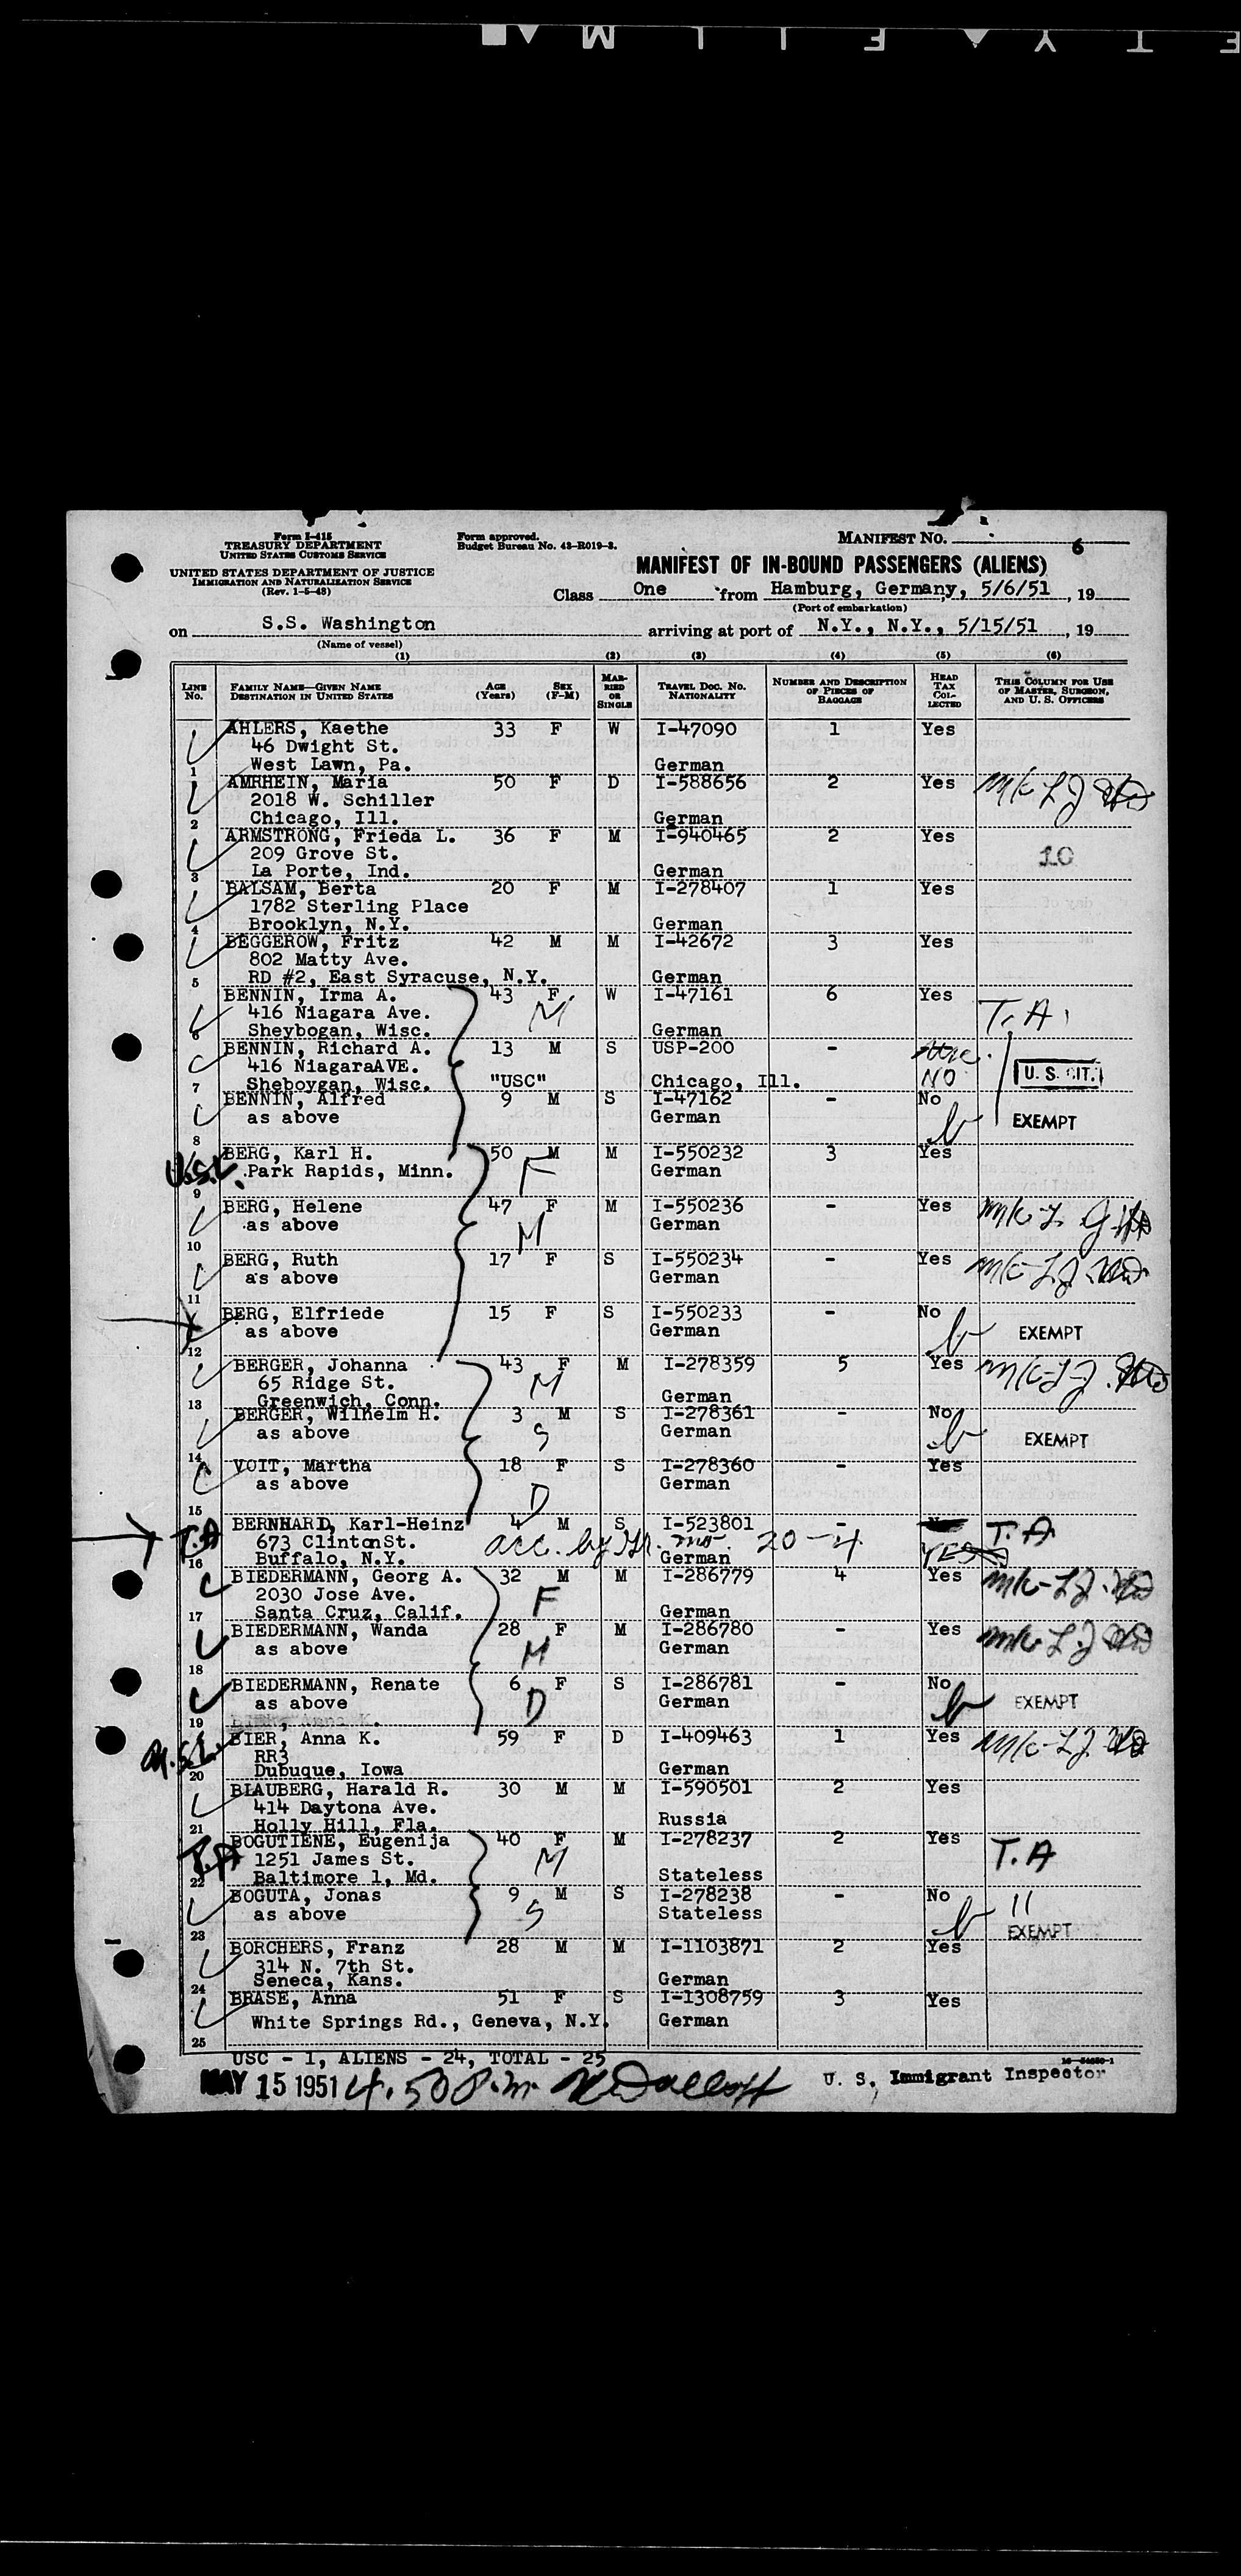 Form I-415
TREASURY DEPARTMENT
UNITED STATES CUSTOMS SERVICE
UNITED STATES DEPARTMENT OF JUSTICE
IMMIGRATION AND NATURALIZATION SERVICE
(Rev. 1-5-48)
Form approved.
Budget Bureau No. 43-R019-3.
MANIFEST NO. 6
MANIFEST OF IN-BOUND PASSENGERS (ALIENS)
Class One from Hamburg, Germany, 5/6/51, 19
(Port of embarkation)
on S.S. Washington arriving at port of N.Y., N.Y., 5/15/51, 19
(Name of vessel)
(1) (2) (3) (4) (5) (6)
LINE NO. FAMILY NAME—GIVEN NAME DESTINATION IN UNITED STATES AGE (Years) SEX (F-M) MARRIED OR SINGLE TRAVEL DOC. NO. NATIONALITY NUMBER AND DESCRIPTION OF PIECES OF BAGGAGE HEAD TAX COLLECTED THIS COLUMN FOR USE OF MASTER, SURGEON, AND U. S. OFFICERS
AHLERS, Kaethe 33 F W I-47090 1 Yes
46 Dwight St.
1 West Lawn, Pa. German
AMRHEIN, Maria 50 F D I-588656 2 Yes
2018 W. Schiller
2 Chicago, Ill. German
ARMSTRONG, Frieda L. 36 F M I-940465 2 Yes
209 Grove St. 10
3 La Porte, Ind. German
BALSAM, Berta 20 F M I-278407 1 Yes
1782 Sterling Place
4 Brooklyn, N.Y. German
BEGGEROW, Fritz 42 M M I-42672 3 Yes
802 Matty Ave.
5 RD #2, East Syracuse, N.Y. German
BENNIN, Irma A. 43 F W I-47161 6 Yes
416 Niagara Ave. M T.A.
6 Sheybogan, Wisc. German
BENNIN, Richard A. 13 M S USP-200 -
416 NiagaraAVE. NO U. S. CIT.
7 Sheboygan, Wisc. "USC" Chicago, Ill.
BENNIN, Alfred 9 M S I-47162 - No
as above German EXEMPT
8
BERG, Karl H. 50 M M I-550232 3 Yes
Park Rapids, Minn. F German
9
BERG, Helene 47 F M I-550236 - Yes
as above M German
10
BERG, Ruth 17 F S I-550234 - Yes
as above German
11
BERG, Elfriede 15 F S I-550233 - No
as above German EXEMPT
12
BERGER, Johanna 43 F M I-278359 5 Yes
65 Ridge St. M
13 Greenwich, Conn. German
BERGER, Wilhelm H. 3 M S I-278361 - No
as above S German EXEMPT
14
VOIT, Martha 18 F S I-278360 - Yes
as above D German
15
BERNHARD, Karl-Heinz 4 M S I-523801 -
T.A 673 ClintonSt. acc. by 20-4 T.A.
16 Buffalo, N.Y. German YES
BIEDERMANN, Georg A. 32 M M I-286779 4 Yes
2030 Jose Ave. F
17 Santa Cruz, Calif. German
BIEDERMANN, Wanda 28 F M I-286780 - Yes
as above M German
18
BIEDERMANN, Renate 6 F S I-286781 - No
as above D German EXEMPT
19
BIER, Anna K. 59 F D I-409463 1 Yes
RR3
20 Dubuque, Iowa German
BLAUBERG, Harald R. 30 M M I-590501 2 Yes
414 Daytona Ave.
21 Holly Hill, Fla. Russia
BOGUTIENE, Eugenija 40 F M I-278237 2 Yes
T.A 1251 James St. M T.A
22 Baltimore 1, Md. Stateless
BOGUTA, Jonas 9 M S I-278238 - No 11
as above S Stateless EXEMPT
23
BORCHERS, Franz 28 M M I-1103871 2 Yes
314 N. 7th St.
24 Seneca, Kans. German
BRASE, Anna 51 F S I-1308759 3 Yes
White Springs Rd., Geneva, N.Y. German
25
USC - 1, ALIENS - 24, TOTAL - 25
MAY 15 1951 4.50 P.m. U. S. Immigrant Inspector